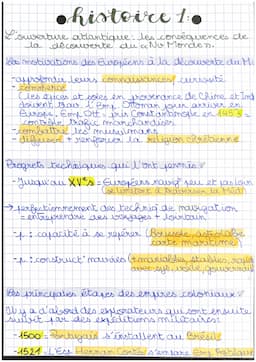 histoire 1:
L'ouverture atlantique: les conséquences de
la découverte du « Nv Monde ».
les motivations des Européens à la découverte du M
- approfondir leurs connaissances, curiosité
- commerce
( les épices et soies en provenance de Chine et Ind
doivent par l'Emp. Ottoman pour arriver en
Europe, Emp. Ott → pris Constantinople en 1453
contrôle trafic marchandises
- combattre les musulmans
- diffuser + renforcer la religion chrétienne
Progrets techniques qui l'ont permis
- Jusqu'au XVe s = Européens navig peu et pas loin
se limitant à traverser la Méd
→ perfectionnement des techniq de navigation
= entreprendre des voyages + lointain
- p : capacité à se repérer (Boussole, astrolabe
carte maritime)
- p : construct° navires (+ maniables, stables, rapid
avec gouvernail
les principales étapes des empires coloniaux
Il y a d'abord des explorateurs qui sont ensuite
suivit par des expéditions militaires:
- 1500 - Portugais s'installent au Brésil
- 1521 - L'Es Hernan Cortés s'empare Emp. Aztèque